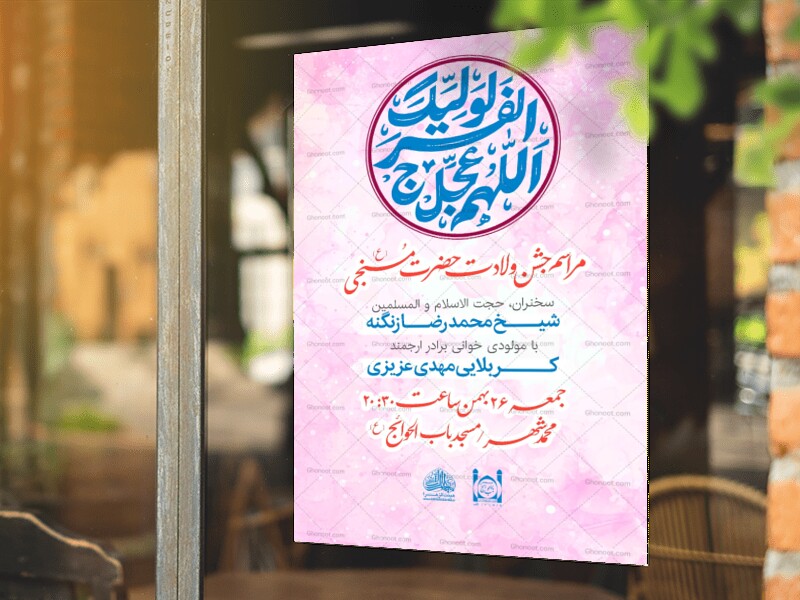 اللّهم عجّل لولیک الفرج
مراسم جشن ولادت حضرت منجی (عج)
سخنران، حجت الاسلام و المسلمین
شیخ محمدرضا زنگنه
با مولودی خوانی برادر ارجمند
کربلایی مهدی عزیزی
جمعه ۲۶ بهمن ساعت ۲۰:۳۰
محمدشهر / مسجد باب الحوائج (ع)
Ghonoot.com